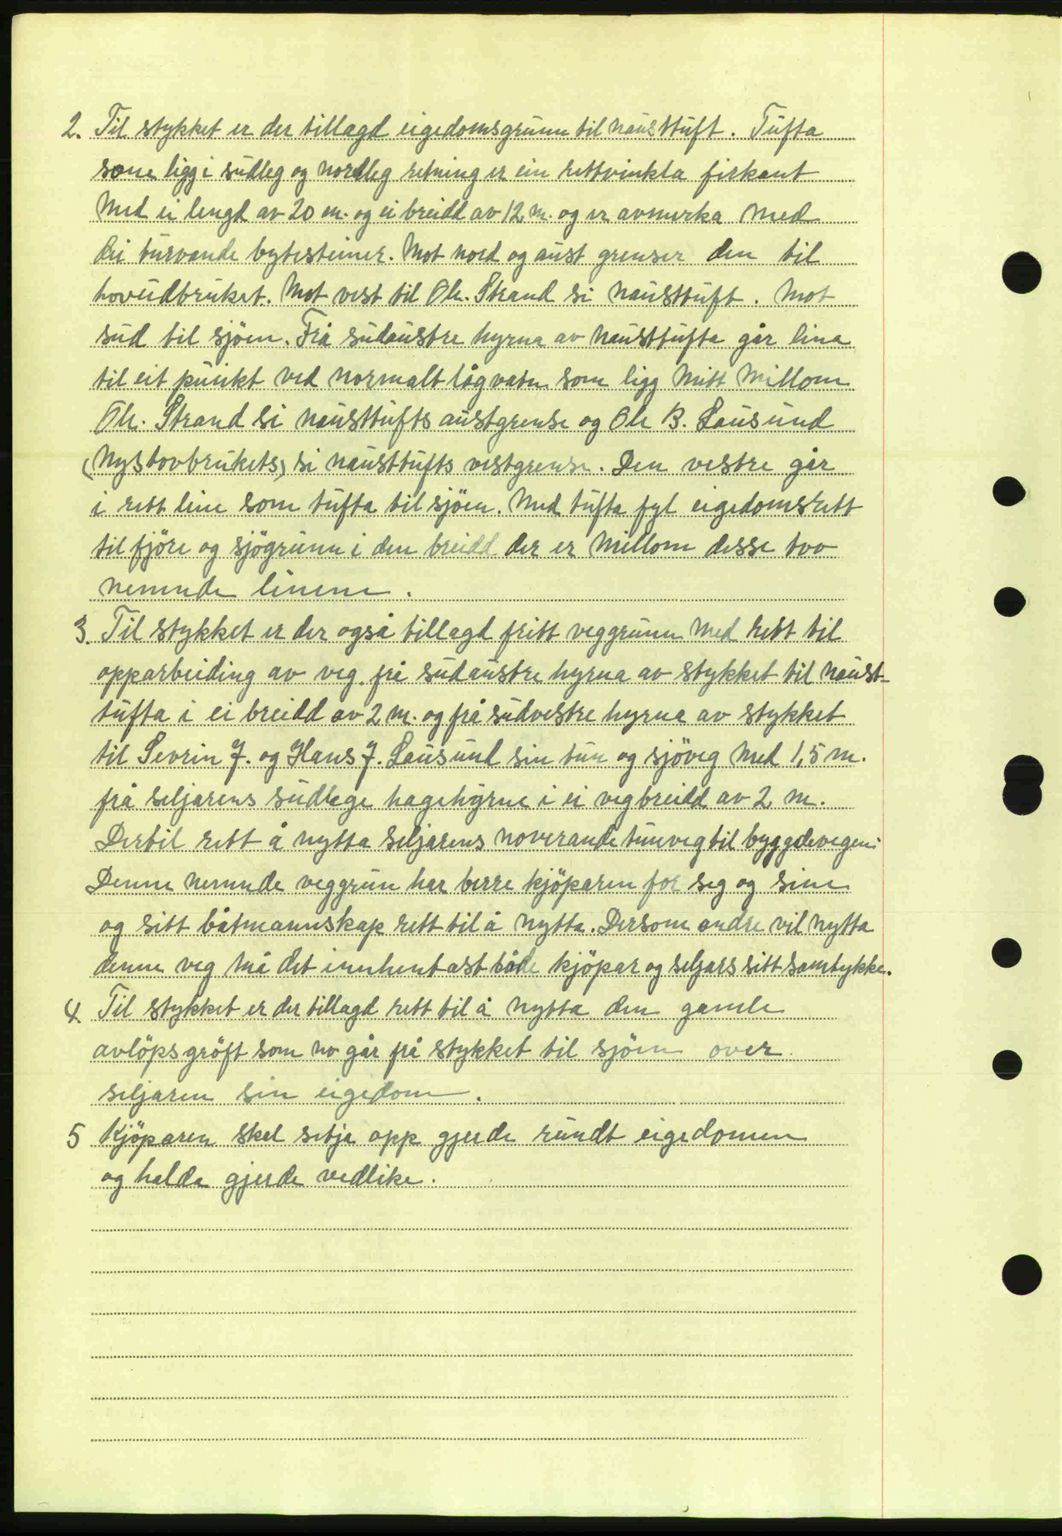 2. Til stykket er der tillagd eigedomsgrunn til nausttuft. Tufta
som ligg i sudleg og nordleg retning er ein rettvinkla firkant
med ei lengd av 20 m. og ei breidd av 12 m. og er avmerka med
dei turvande bytesteiner. Mot nord og aust grenser den til
hovudbruket. Mot vest til Ole. Strand si nausttuft. Mot
sud til sjöen. Frå sudaustre hyrna av nausttufta går lina
til eit punkt ved normalt lågvatn som ligg mitt millom
Ole. Strand si nausttufts austgrense og Ole B. Lausund
(Nystovbrukets) si nausttufts vestgrense. Den vestre går
i rett line som tufta til sjöen. Med tufta fyl eigedomsrett
til fjöre og sjögrunn i den breidd der er millom desse tvo
nemnde linene.
3. Til stykket er der også tillagd fritt veggrunn med rett til
opparbeiding av veg frå sudaustre hyrna av stykket til naust-
tufta i ei breidd av 2 m. og frå sudvestre hyrna av stykket
til Sevrin J. og Hans J. Lausund sin tun og sjöveg med 1,5 m.
frå seljarens sudlege hagehyrne i ei vegbreidd av 2 m.
Dertil rett å nytta seljarens noverande tunveg til byggdevegen.
Denne nemnde veggrun har berre kjöparen for seg og sine
og sitt båtmannskap rett til å nytta. Dersom andre vil nytta
denne veg må det innhentast både kjöpar og seljars sitt samtykke.
4 Til stykket er der tillagd rett til å nytta den gamle
avlöpsgröft som no går frå stykket til sjöen over
seljaren sin eigedom.
5 Kjöparen skal setja opp gjerde rundt eigedomen
og halda gjerde vedlike.